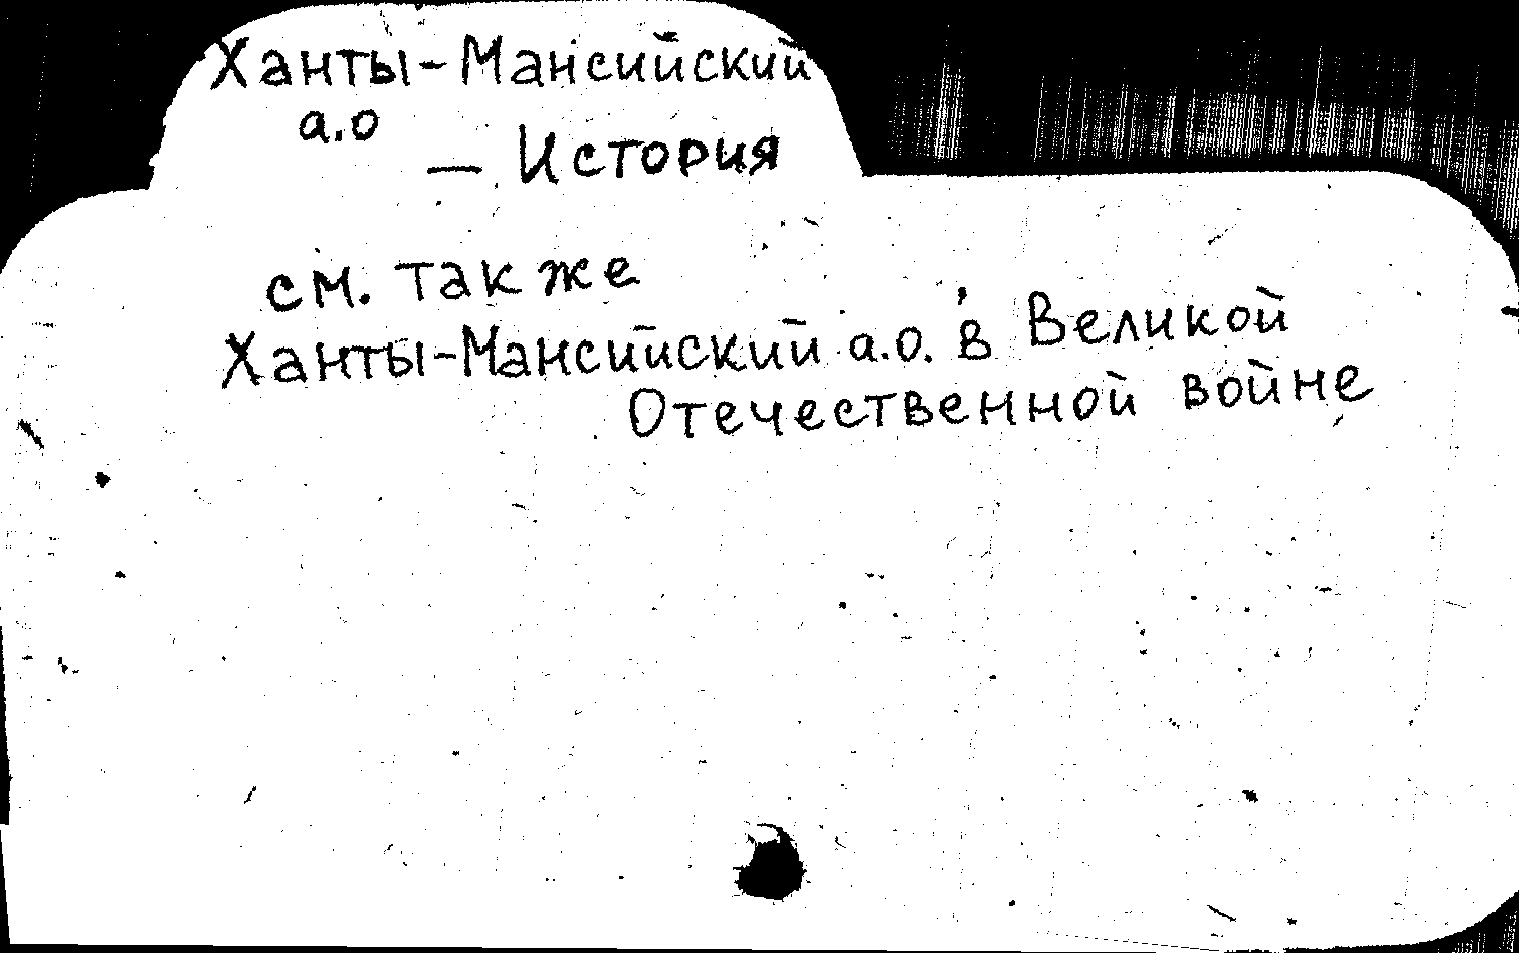 Ханты-Мансийский
а.о
— История
см. также
Ханты-Мансийский а.о. в Великой
Отечественной войне